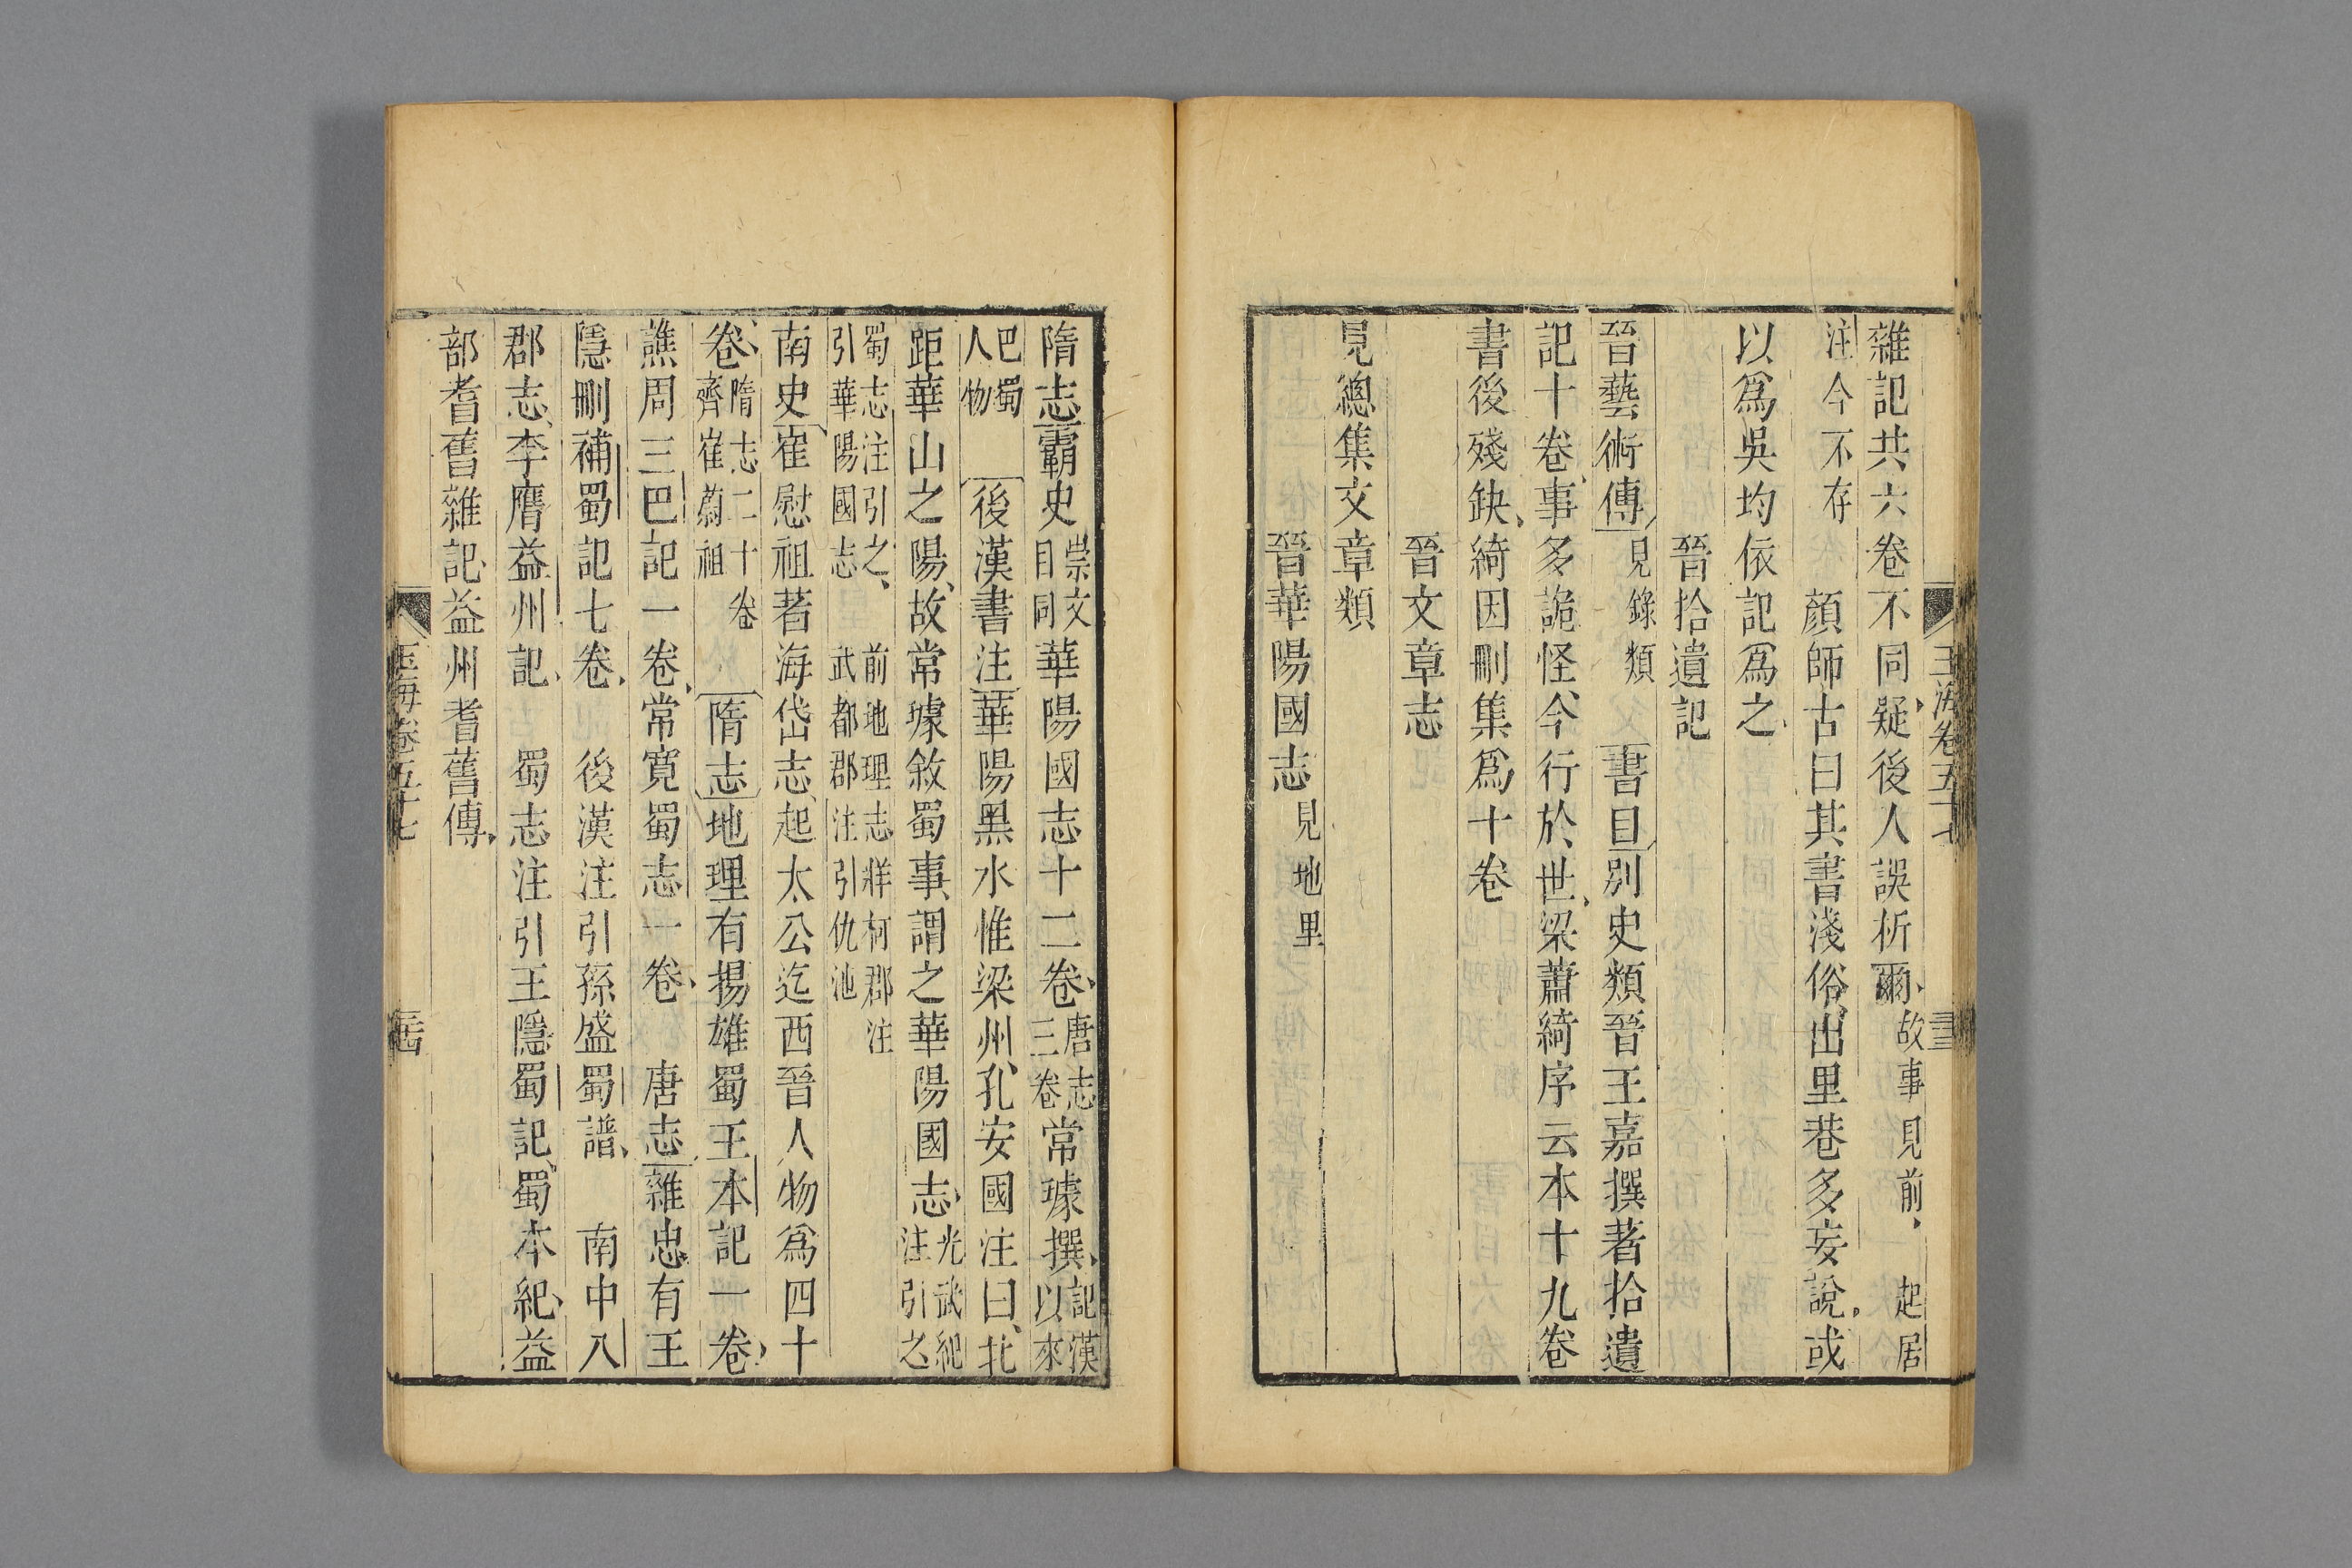 雜記共六卷不同疑後人誤析爾故事見前起居
注今不存　顏師古曰其書淺俗出里巷多妄說或
以爲吳均依記爲之
晉拾遺記
晉藝術傳見錄類　書目別史類晉王嘉撰著拾遺
記十卷事多詭怪今行於世梁蕭綺序云本十九卷
書後殘缺綺因刪集爲十卷
晉文章志
見總集文章類
晉華陽國志見地里
隋志霸史崇文目同華陽國志十二卷唐志三卷常璩撰記漢以來
巴蜀人物　後漢書注華陽黑水惟梁州孔安國注曰北
距華山之陽故常璩敘蜀事謂之華陽國志光武紀注引之
蜀志注引之　前地理志牂柯郡注
引華陽國志　武都郡注引仇池
南史崔慰祖著海岱志起太公迄西晉人物爲四十
卷隋志二十卷齊崔蔚祖　隋志地理有揚雄蜀王本記一卷
譙周三巴記一卷常寬蜀志一卷　唐志雜忠有王
隱刪補蜀記七卷　後漢注引孫盛蜀譜　南中八
郡志李膺益州記　蜀志注引王隱蜀記蜀本紀益
部耆舊雜記益州耆舊傳
玉海卷五十七